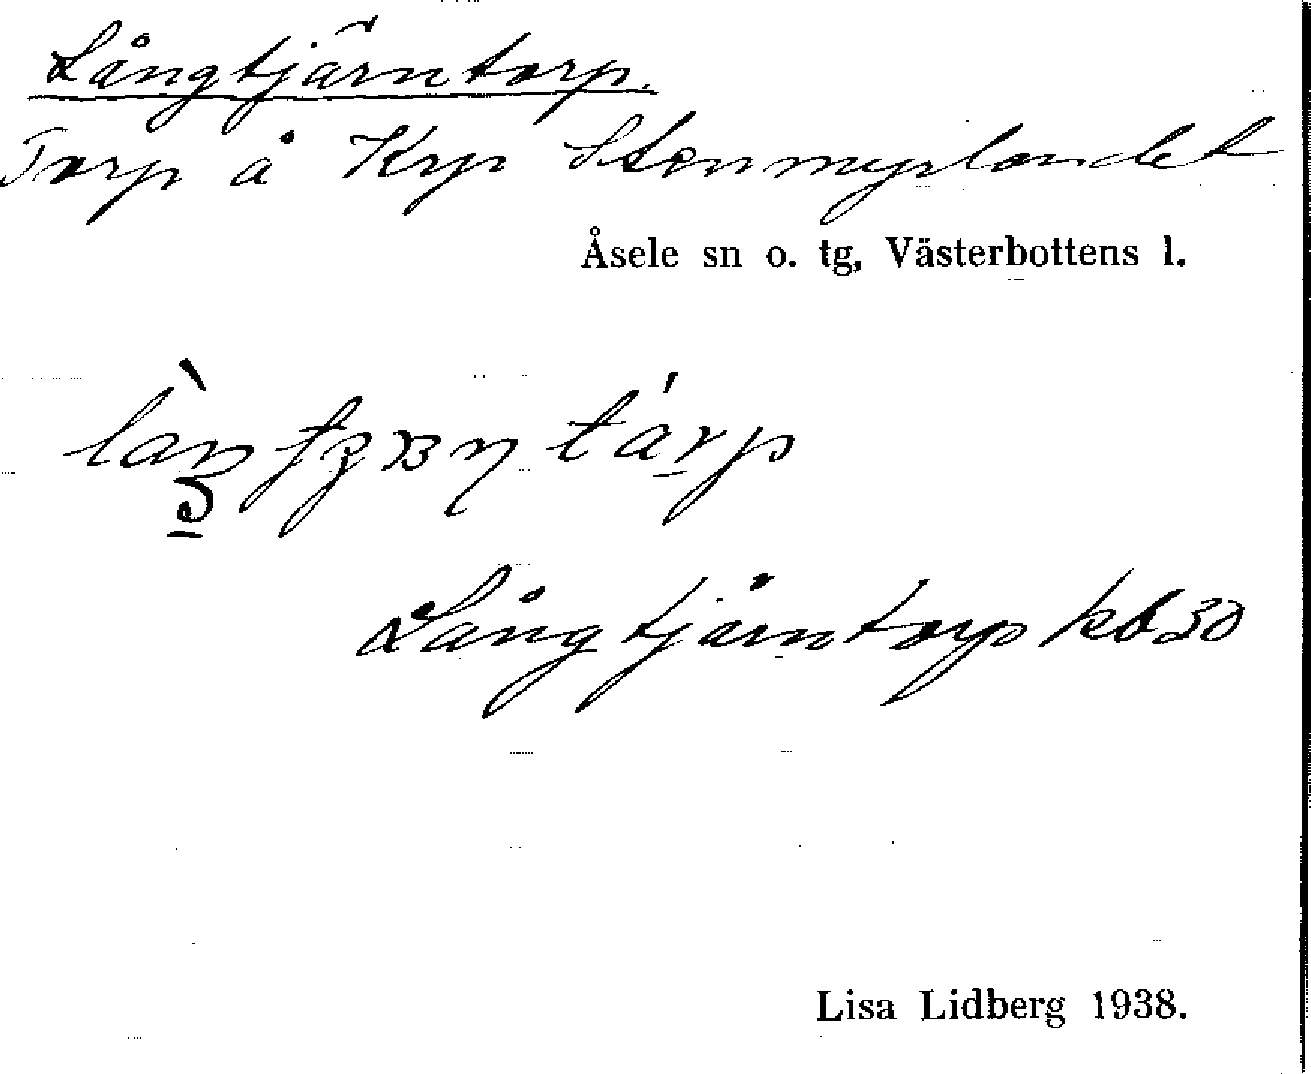 Långtjärntorp.
Torp å Krp Stenmyrlandet
Åsele sn o. tg, Västerbottens l.
Långtjärntorp kb 30
Lisa Lidberg 1938.